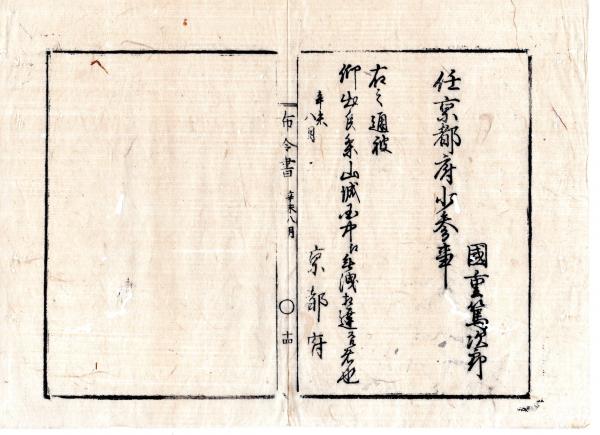 國重篤次郎
任京都府少参事
右之通被
仰出候条山城国中江無洩相達者也
辛未
八月
京都府
布令書 辛未八月 〇 十四